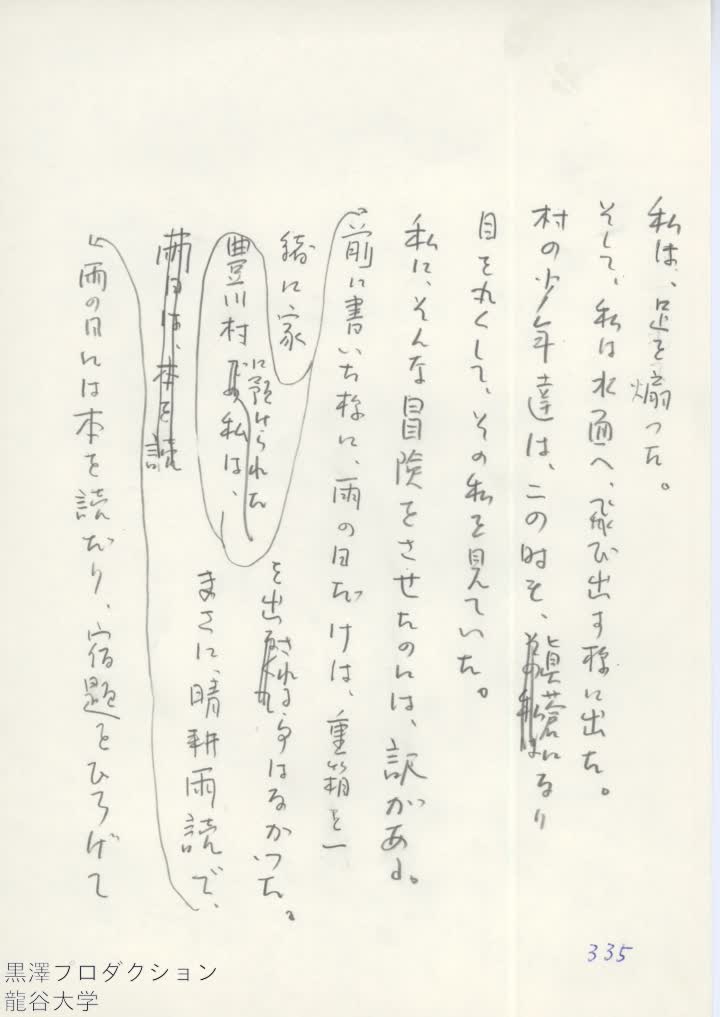 私は、足を煽った。
そして、私は水面へ、飛び出す様に出た。
村の少年達は、この時も、眞蒼になり
目を丸くして、その私を見ていた。
私に、そんな冒険をさせたのには、訳がある。
前に書いた様に、雨の日だけは、重箱を一
緒に家
を出される事はなかった。
豊川村に預けられた私は、
まさに、晴耕雨読で、
雨の日には本を読だり、宿題をひろげて
335
黒澤プロダクション
龍谷大学